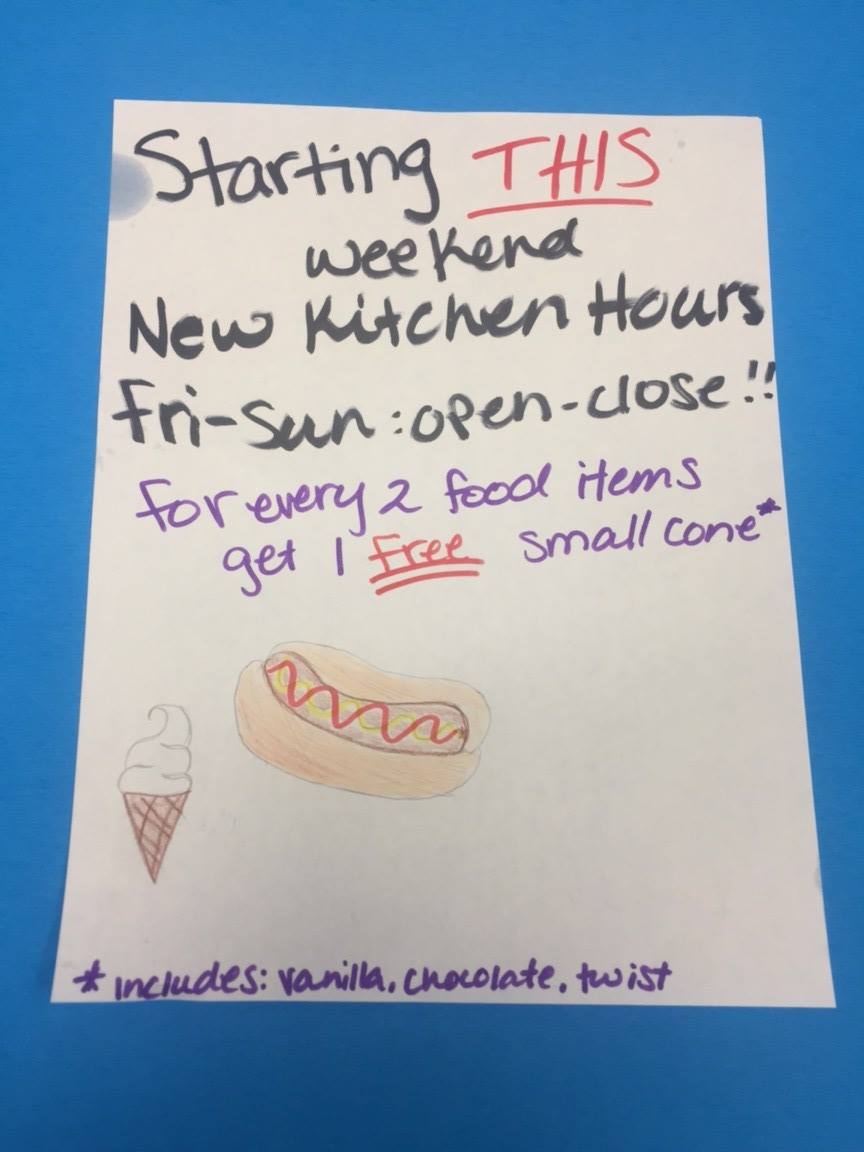 Starting THIS
weekend
New Kitchen Hours
Fri-Sun: open-close!!
for every 2 food items
get 1 Free small cone*
* includes: vanilla, chocolate, twist